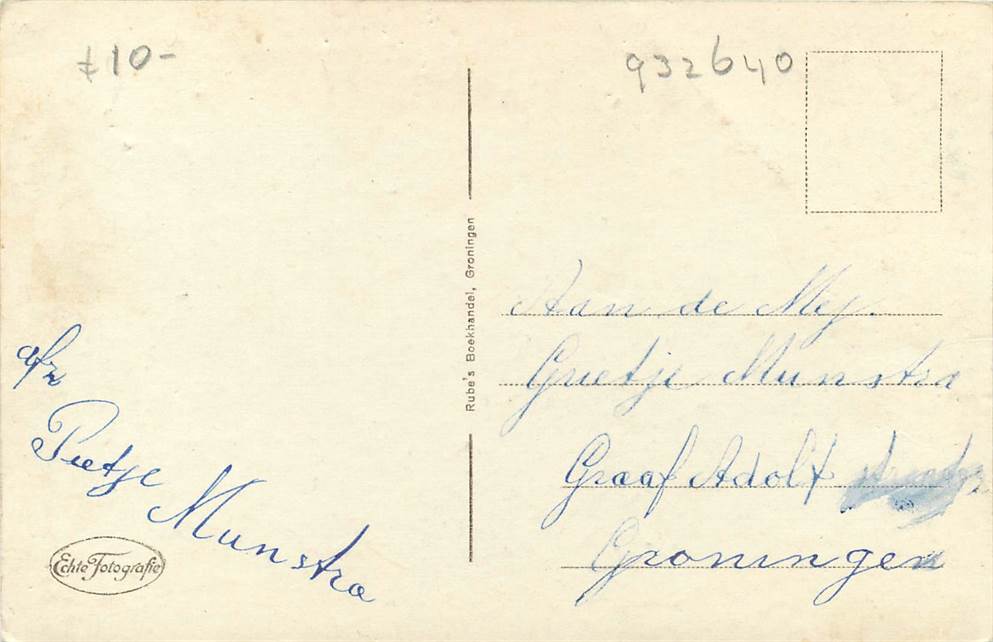 f 10-
932640
Rube's Boekhandel, Groningen
Aan de Mej.
Grietje Munstra
Graaf Adolf
Groningen
afz
Pietje
Munstra
Echte Fotografie